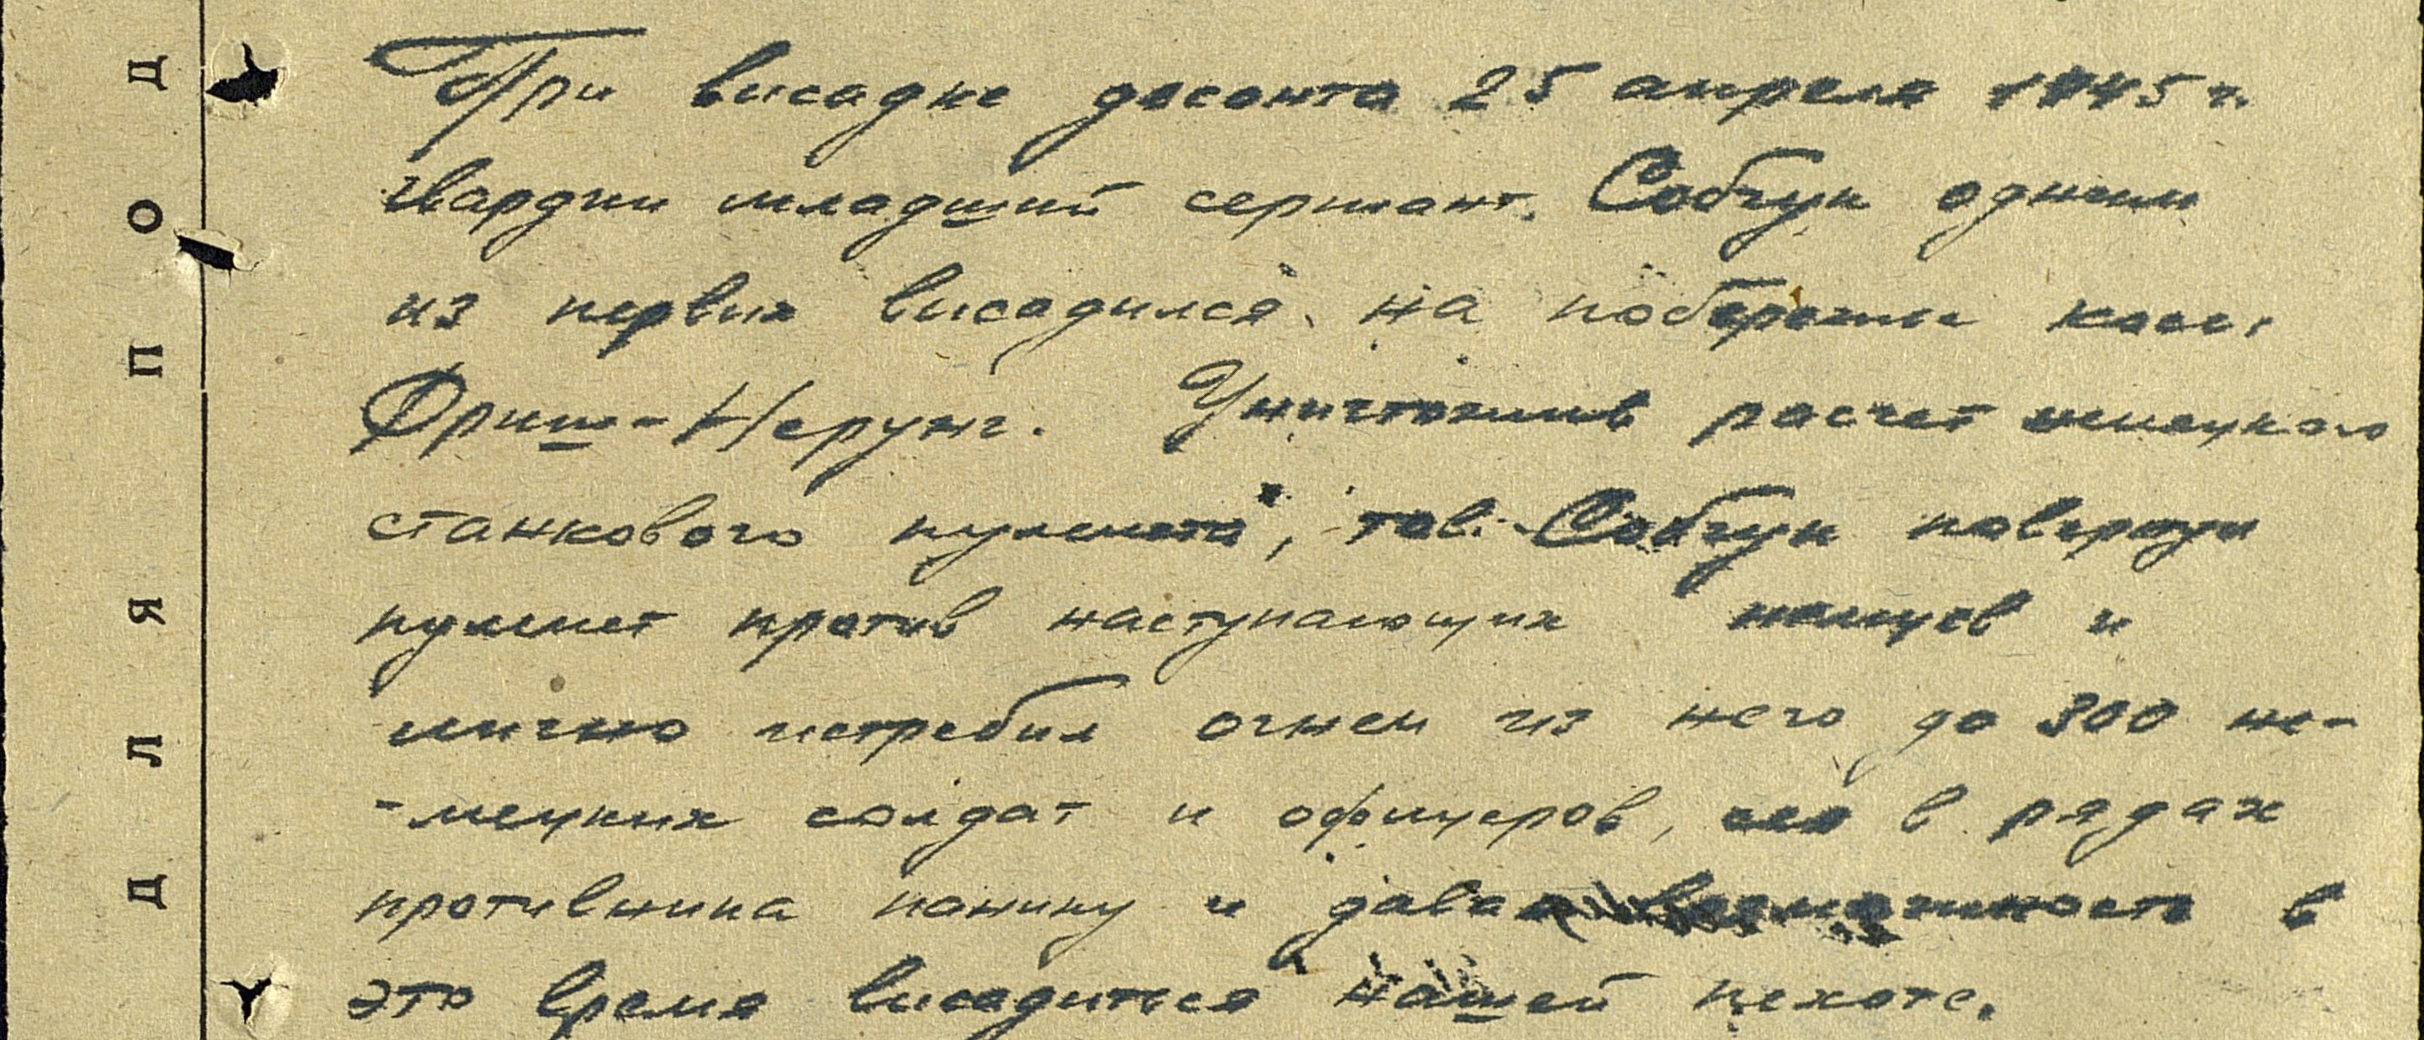 При высадке десанта 25 апреля 1945 г.
гвардии младший сержант Собчук одним
из первых высадился на побережье косы
Фриш-Нерунг. Уничтожив расчет немецкого
станкового пулемета, тов. Собчук повернул
пулемет против наступающих немцев и
лично истребил огнем из него до 300 не-
-мецких солдат и офицеров, сея в рядах
противника панику и давая возможность в
это время высадиться нашей пехоте.
ДЛЯ ПОД